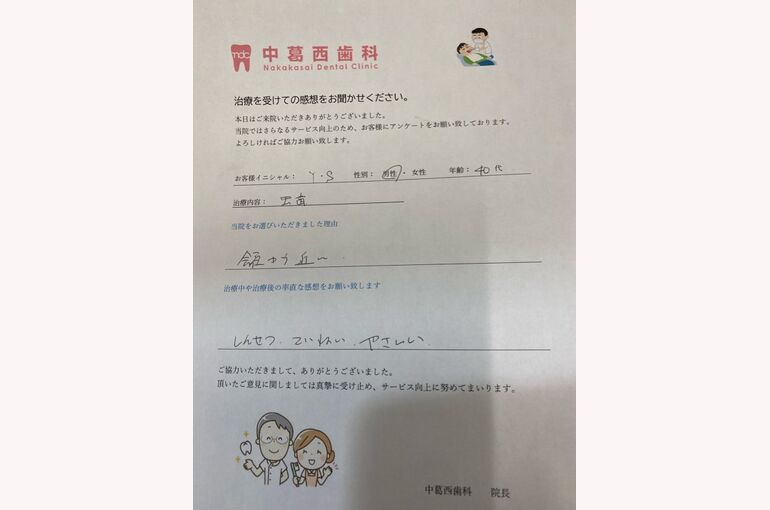 mdc
中葛西歯科
Nakakasai Dental Clinic
治療を受けての感想をお聞かせください。
本日はご来院いただきありがとうございました。
当院ではさらなるサービス向上のため、お客様にアンケートをお願い致しております。
よろしければご協力お願い致します。
お客様イニシャル： Y・S 性別： 男性・女性 年齢： 40代
治療内容： 虫歯
当院をお選びいただきました理由
から近い
治療中や治療後の率直な感想をお願い致します
しんせつ、ていねい、やさしい
ご協力いただきまして、ありがとうございました。
頂いたご意見に関しましては真摯に受け止め、サービス向上に努めてまいります。
中葛西歯科 院長